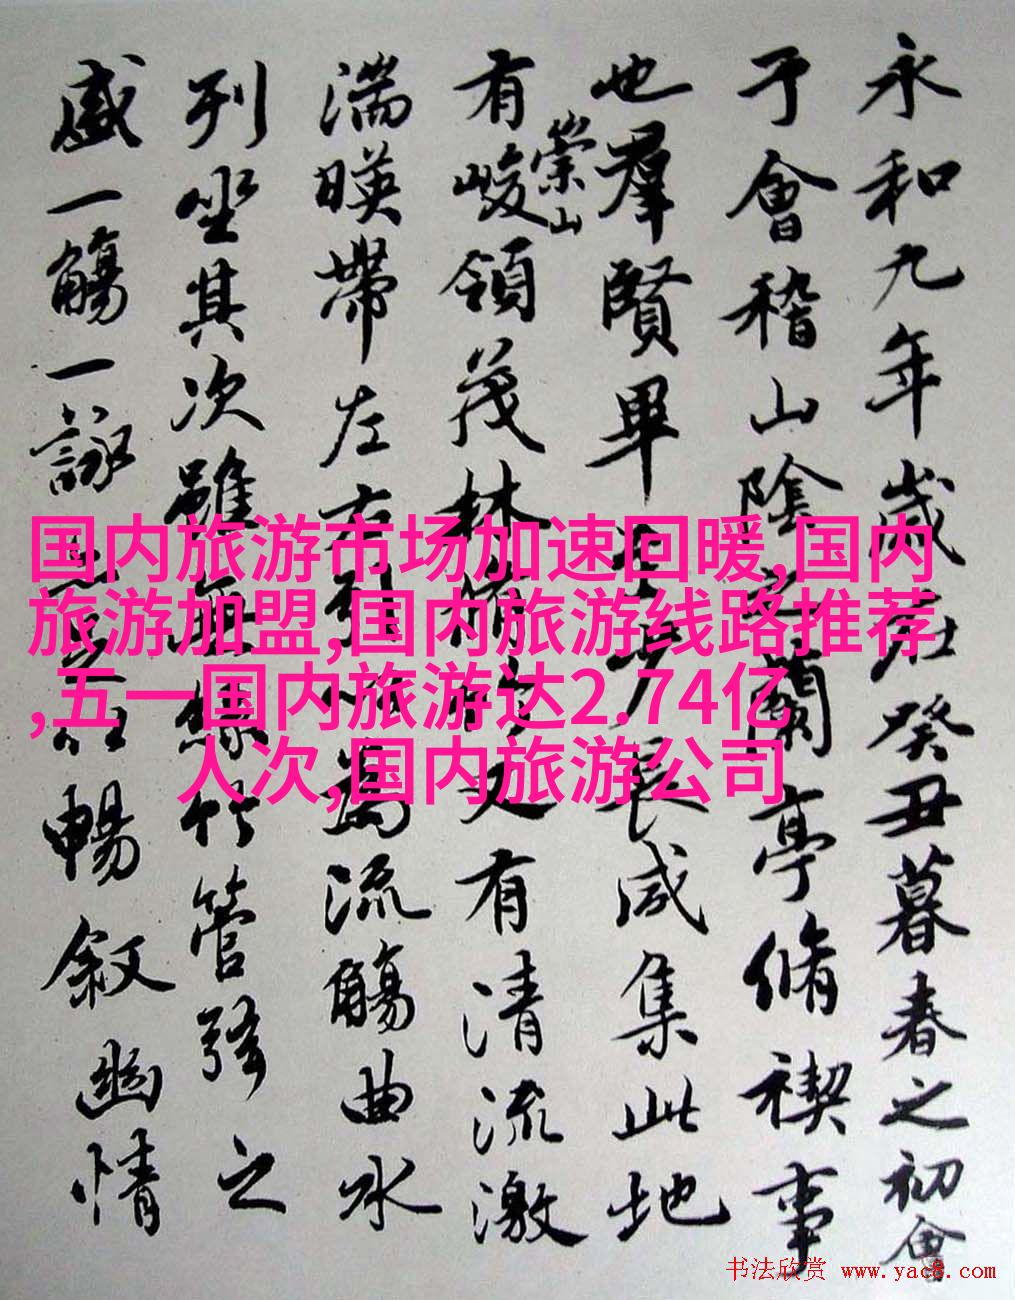 永和九年歲在癸丑暮春之初會
于會稽山陰之蘭亭脩禊事
也羣賢畢至少長咸集此地
有崇山峻領茂林脩竹又有清流激
湍暎帶左右引以為流觴曲水
列坐其次雖無絲竹管弦之
盛一觴一詠亦足以暢敘幽情
国内旅游市场加速回暖,国内
旅游加盟,国内旅游线路推荐
,五一国内旅游达2.74亿
人次,国内旅游公司
书法欣赏 www.yac8.com